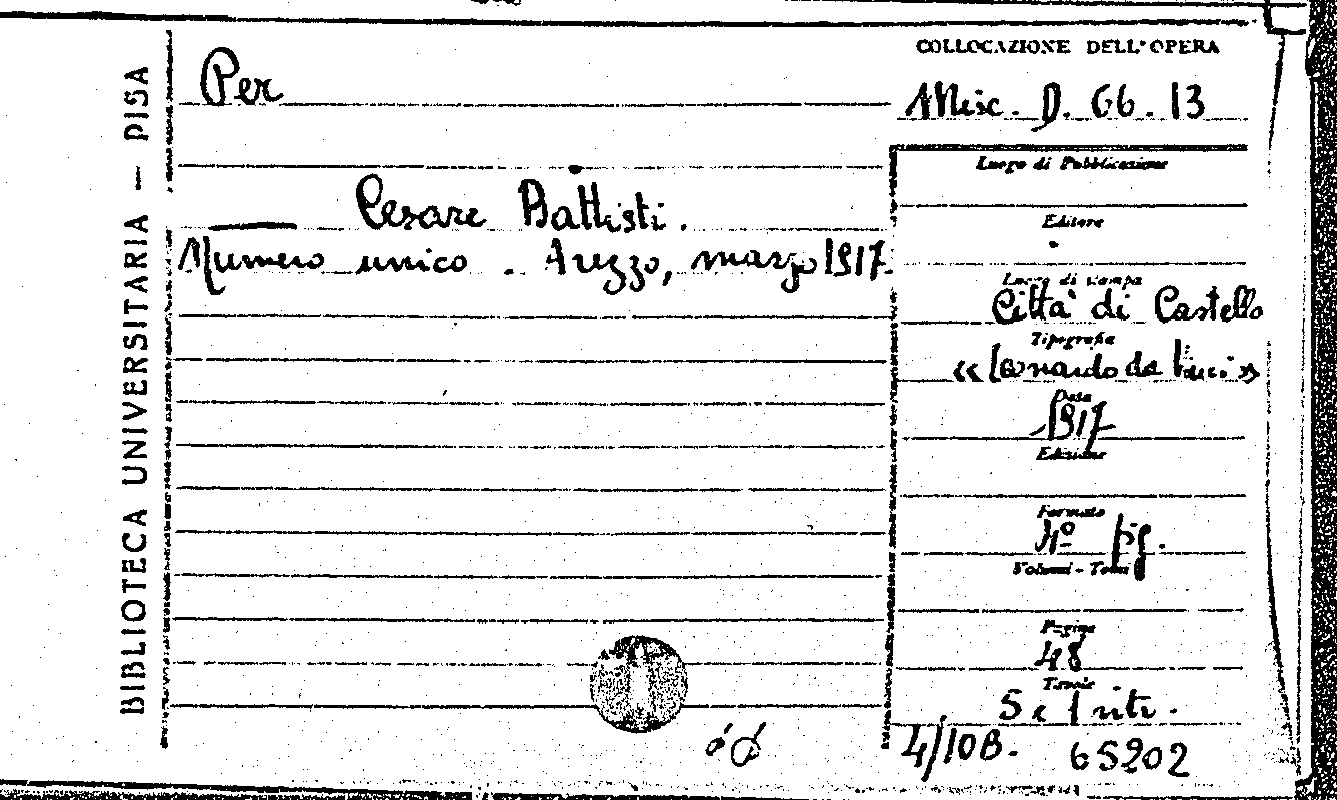 BIBLIOTECA UNIVERSITARIA — PISA
Per
Cesare Battisti.
Numero unico. Arezzo, marzo 1917.
COLLOCAZIONE DELL'OPERA
Misc. D. 66. 13
Luogo di Pubblicazione
Editore
Luogo di stampa
Città di Castello
Tipografia
«Leonardo da Vinci»
Data
1917
Edizione
Formato
4º fig.
Volumi - Tomi
Pagine
48
Tavole
5 e 1 ritr.
4/108. 65202